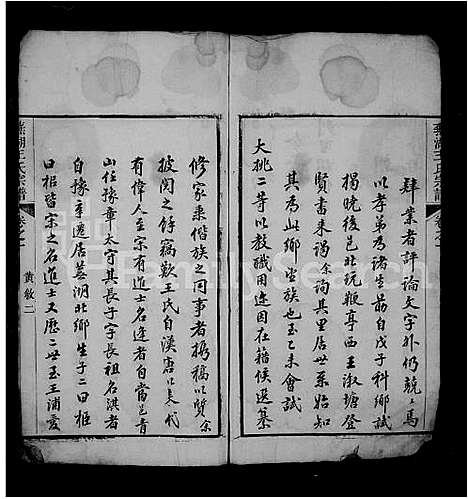 肄業者評論文字外仍兢兢焉
以孝弟為諸生勗自戊子科鄉試
揭曉後邑北玩鞭亭西王淑塘登
賢書來謁余詢其里居世系始知
其為此鄉望族也至乙未會試
大挑二等以教職用途因在籍候選纂
蕪湖王氏宗譜
修家乘偕族之同事者携稿以質余
披閱之餘竊歎王氏自漢唐以來代
有偉人至宗有道士名逢者自當邑青
山任豫章太守其長子字長祖名洪者
自豫章遷居蕪湖北鄉生子二曰柜
曰桕皆宗之名進士又歷二世至王浦
蕪湖王氏宗譜
卷之一
黃敘二
FamilySearch